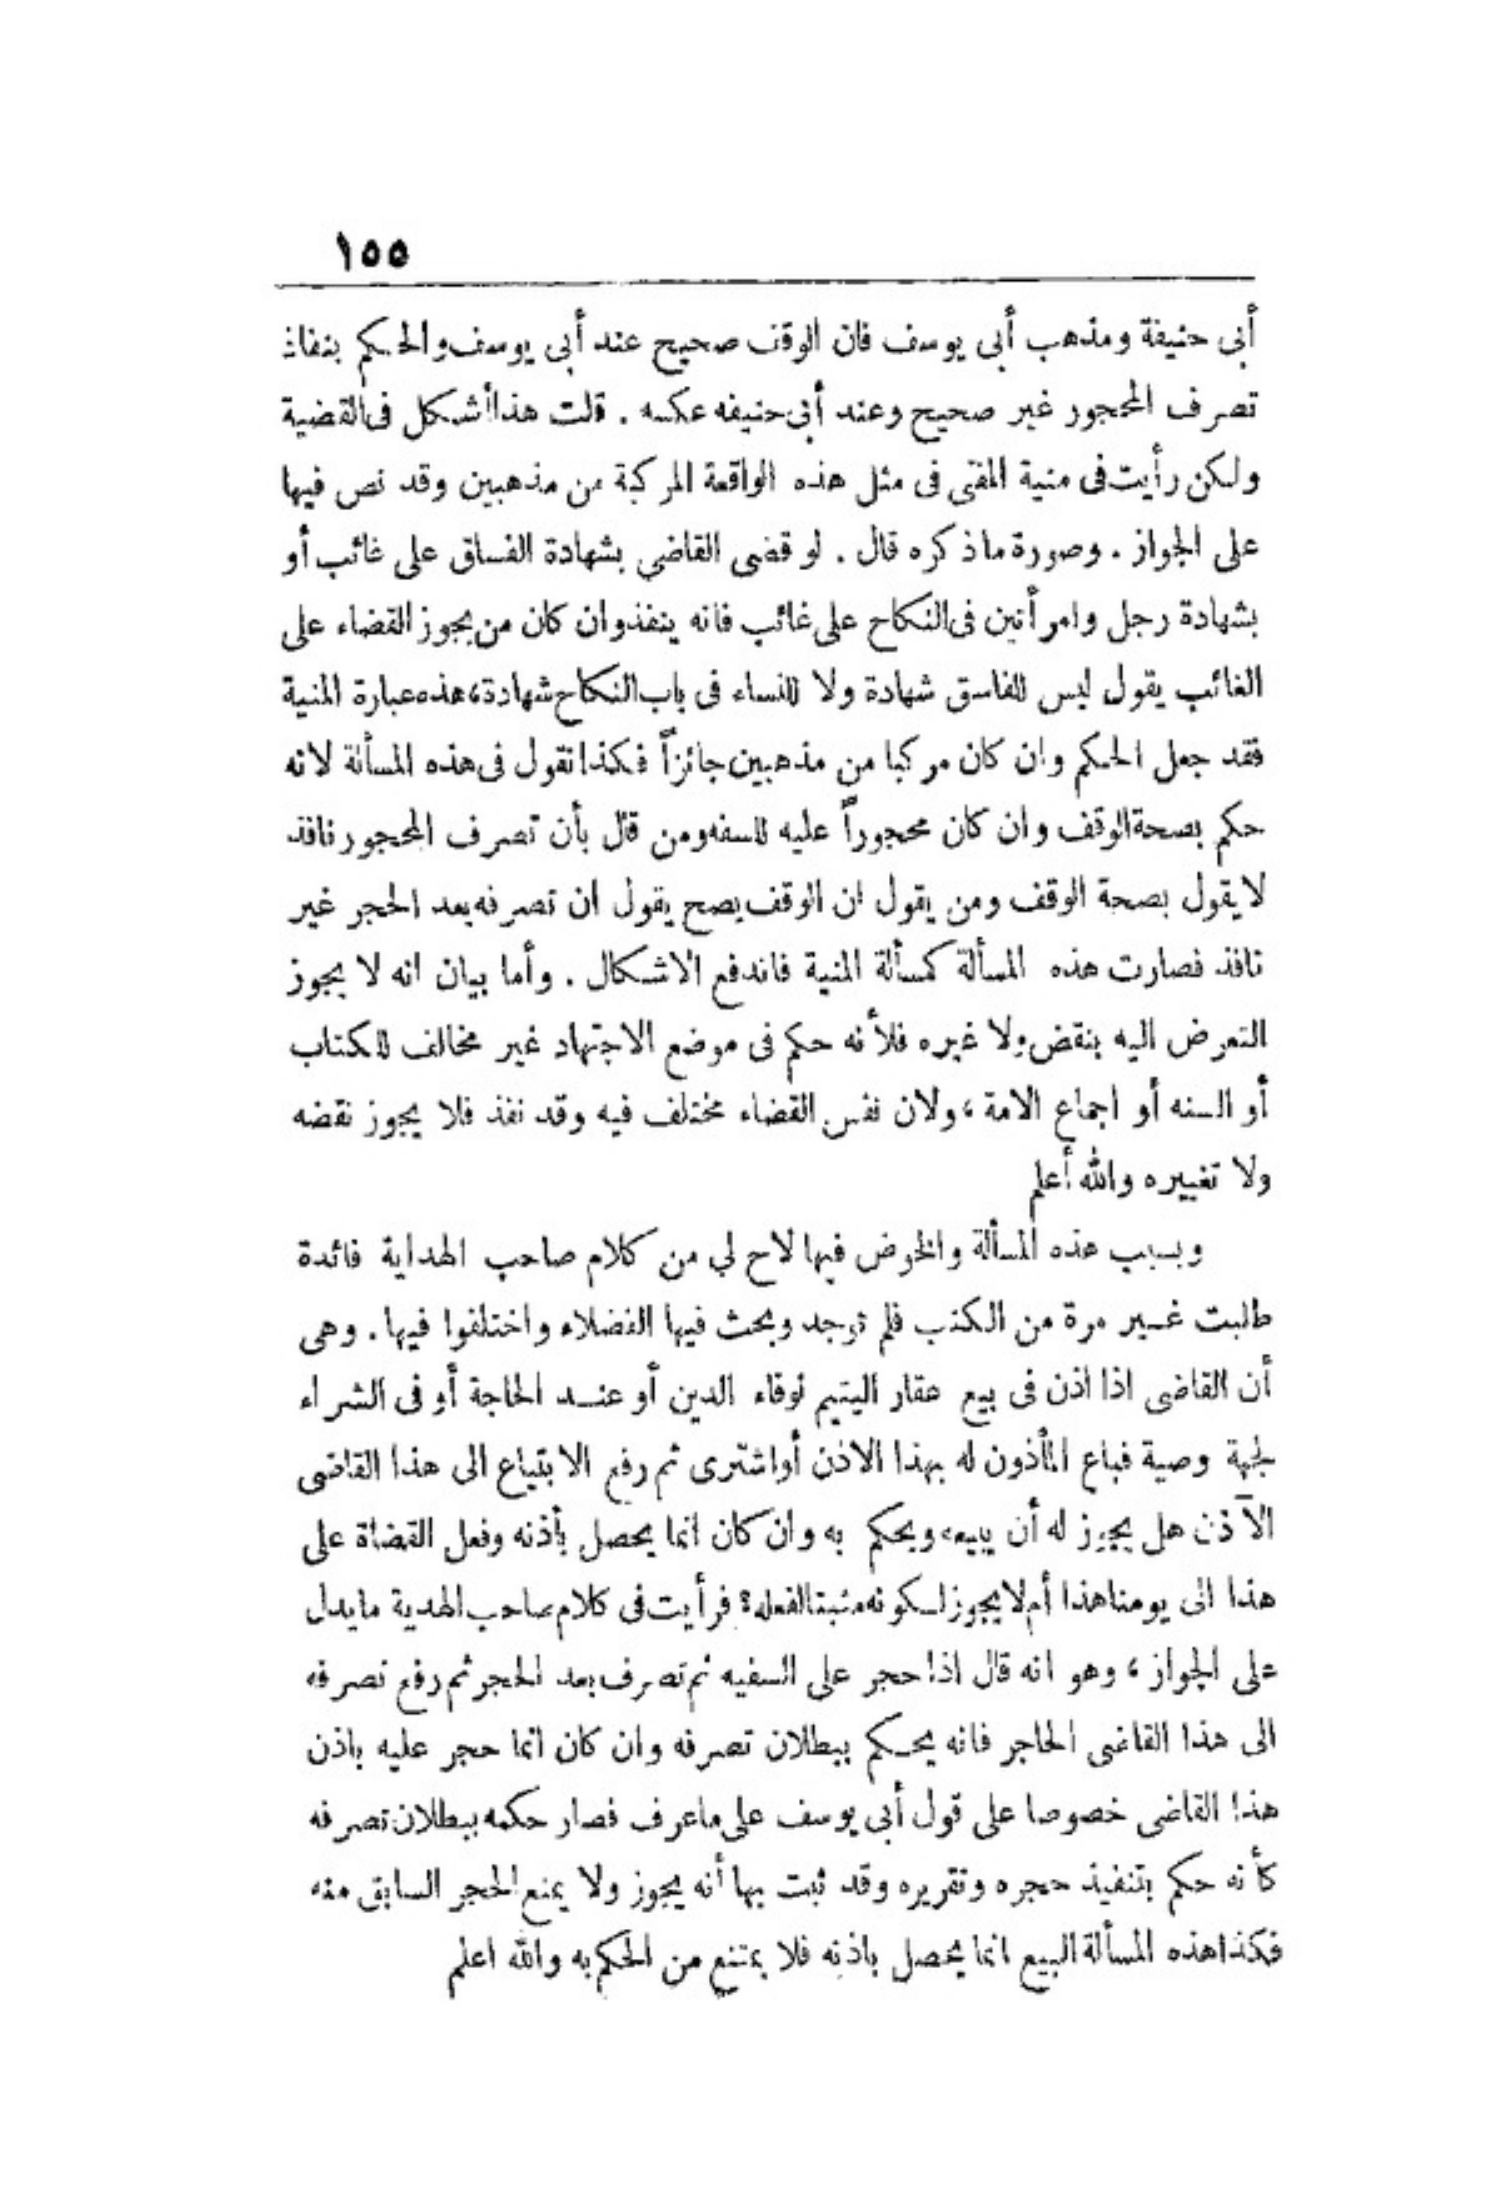 ١٥٥
أبى حنيفة ومذهب أبى يوسف فان الوقف صحيح عند أبى يوسف والحكم بنفاذ
تصرف المحجور غير صحيح وعند أبى حنيفه عكسه . قلت هذا أشكل فى القضية
ولكن رأيت فى منية المفتى فى مثل هذه الواقعة المركبة من مذهبين وقد نص فيها
على الجواز . وصورة ما ذكره قال . لو قضى القاضي بشهادة الفساق على غائب أو
بشهادة رجل وامرأتين فى النكاح على غائب فانه ينفذ وان كان من يجوز القضاء على
الغائب يقول ليس للفاسق شهادة ولا للنساء فى باب النكاح شهادة، هذه عبارة المنية
فقد جعل الحكم وان كان مركبا من مذهبين جائزاً فكذا نقول فى هذه المسألة لانه
حكم بصحة الوقف وان كان محجوراً عليه للسفه ومن قال بأن تصرف المحجور نافذ
لا يقول بصحة الوقف ومن يقول ان الوقف يصح يقول ان تصرفه بعد الحجر غير
نافذ فصارت هذه المسألة كمسألة المنية فاندفع الاشكال . وأما بيان انه لا يجوز
التعرض اليه بنقض ولا غيره فلأنه حكم فى موضع الاجتهاد غير مخالف للكتاب
أو السنه أو اجماع الامة ، ولان نفس القضاء مختلف فيه وقد نفذ فلا يجوز نقضه
ولا تغييره والله أعلم
وبسبب هذه المسألة والخوض فيها لاح لي من كلام صاحب الهداية فائدة
طلبت غير مرة من الكتب فلم توجد وبحث فيها الفضلاء واختلفوا فيها . وهى
أن القاضى اذا اذن فى بيع عقار اليتيم لوفاء الدين أو عند الحاجة أو فى الشراء
لجهة وصية فباع المأذون له بهذا الاذن أو اشترى ثم رفع الابتياع الى هذا القاضى
الآذن هل يجوز له أن يبيعه ويحكم به وان كان انما يحصل بأذنه وفعل القضاة على
هذا الى يومنا هذا أم لا يجوز لكونه مثبتا لفعله؟ فرأيت فى كلام صاحب الهدية ما يدل
على الجواز ، وهو انه قال اذا حجر على السفيه ثم تصرف بعد الحجر ثم رفع تصرفه
الى هذا القاضى الحاجر فانه يحكم ببطلان تصرفه وان كان انما حجر عليه باذن
هذا القاضى خصوصا على قول أبى يوسف على ما عرف فصار حكمه ببطلان تصرفه
كأنه حكم بتنفيذ حجره وتقريره وقد ثبت بها أنه يجوز ولا يمنع الحجر السابق منه
فكذا هذه المسألة البيع انما يحصل باذنه فلا يمتنع من الحكم به والله اعلم